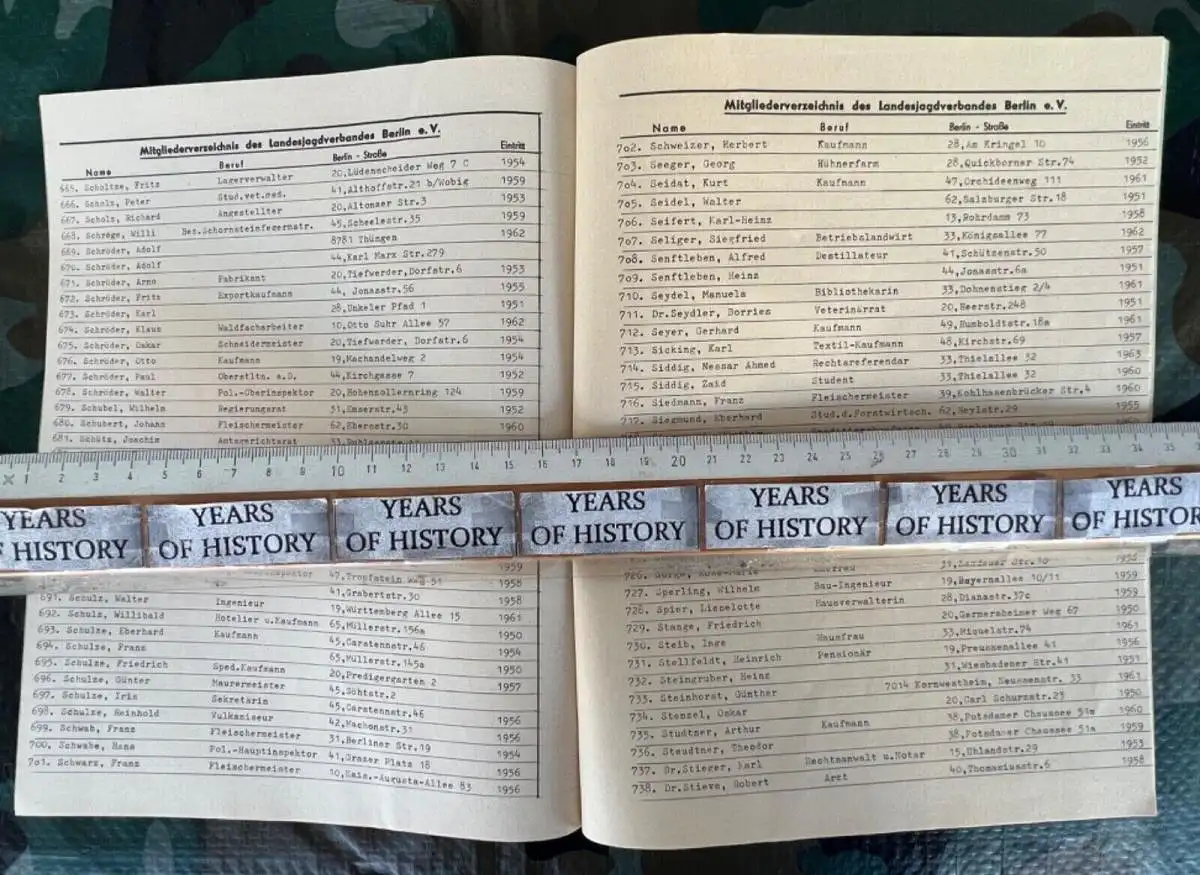 Mitgliederverzeichnis des Landesjagdverbandes Berlin e.V.
Name Beruf Berlin - Straße Eintritt
665. Scholtze, Fritz Lagerverwalter 20,Lüdenscheider Weg 7 C 1954
666. Scholz, Peter Stud.vet.med. 41,Althoffstr.21 b/Wobig 1959
667. Scholz, Richard Angestellter 20,Altonaer Str.3 1953
668. Schrege, Willi Bez.Schornsteinfegermstr. 45,Scheelestr.35 1959
669. Schröder, Adolf 8781 Thüngen 1962
670. Schröder, Adolf 44,Karl Marx Str.279
671. Schröder, Arno Fabrikant 20,Tiefwerder,Dorfstr.6 1953
672. Schröder, Fritz Exportkaufmann 44, Jonasstr.56 1955
673. Schröder, Karl 28,Unkeler Pfad 1 1951
674. Schröder, Klaus Waldfacharbeiter 10,Otto Suhr Allee 57 1962
675. Schröder, Oskar Schneidermeister 20,Tiefwerder, Dorfstr.6 1954
676. Schröder, Otto Kaufmann 19,Machandelweg 2 1954
677. Schröder, Paul Oberstltn. a.D. 44,Kirchgasse 7 1952
678. Schröder, Walter Pol.-Oberinspektor 20,Hohenzollernring 124 1959
679. Schubel, Wilhelm Regierungsrat 31,Emserstr.43 1952
680. Schubert, Johann Fleischermeister 62,Eberstr.30 1960
681. Schütz, Joachim Amtsgerichtsrat
1959
47,Tropfstein Weg 51 1958
41,Grabertstr.30 1958
691. Schulz, Walter Ingenieur 19,Württemberg Allee 15 1961
692. Schulz, Willibald Hotelier u.Kaufmann 65,Müllerstr.156a 1950
693. Schulze, Eberhard Kaufmann 45,Carstennstr.46 1954
694. Schulze, Franz 65,Müllerstr.145a 1950
695. Schulze, Friedrich Sped.Kaufmann 20,Predigergarten 2 1957
696. Schulze, Günter Maurermeister 45,Söhtstr.2
697. Schulze, Iris Sekretärin 45,Carstennstr.46 1956
698. Schulze, Reinhold Vulkaniseur 42,Machonstr.31 1956
699. Schwab, Franz Fleischermeister 31,Berliner Str.19 1954
700. Schwabe, Hans Pol.-Hauptinspektor 41,Grazer Platz 18 1956
701. Schwarz, Franz Fleischermeister 10,Kais.-Augusta-Allee 83 1956
Mitgliederverzeichnis des Landesjagdverbandes Berlin e.V.
Name Beruf Berlin - Straße Eintritt
702. Schweizer, Herbert Kaufmann 28,Am Kringel 10 1956
703. Seeger, Georg Hühnerfarm 28,Quickborner Str.74 1952
704. Seidat, Kurt Kaufmann 47,Orchideenweg 111 1961
705. Seidel, Walter 62,Salzburger Str.18 1951
706. Seifert, Karl-Heinz 13,Rohrdamm 73 1958
707. Seliger, Siegfried Betriebslandwirt 33,Königsallee 77 1962
708. Senftleben, Alfred Destillateur 41,Schützenstr.50 1957
709. Senftleben, Heinz 44,Jonasstr.6a 1951
710. Seydel, Manuela Bibliothekarin 33,Dohnenstieg 2/4 1961
711. Dr.Seydler, Dorries Veterinärrat 20,Heerstr.248 1951
712. Seyer, Gerhard Kaufmann 49,Humboldtstr.18a 1961
713. Sicking, Karl Textil-Kaufmann 48,Kirchstr.69 1957
714. Siddig, Nessar Ahmed Rechtsreferendar 33,Thielallee 32 1963
715. Siddig, Zaid Student 33,Thielallee 32 1960
716. Siedmann, Franz Fleischermeister 39,Kohlhasenbrücker Str.4 1960
717. Siegmund, Eberhard Stud.d.Forstwirtsch. 62,Heylstr.29 1955
1 2 3 4 5 6 7 8 9 10 11 12 13 14 15 16 17 18 19 20 21 22 23 24 25 26 27 28 29 30 31 32 33 34 35
YEARS OF HISTORY YEARS OF HISTORY YEARS OF HISTORY YEARS OF HISTORY YEARS OF HISTORY YEARS OF HISTORY YEARS OF HISTORY
727. Sperling, Wilhelm Bau-Ingenieur 19,Bayernallee 10/11 1959
728. Spier, Lieselotte Hausverwalterin 28,Dianastr.37c 1959
729. Stange, Friedrich 20,Germersheimer Weg 67 1950
730. Steib, Inge Hausfrau 33,Miquelstr.74 1961
731. Stellfeldt, Heinrich Pensionär 19,Preussenallee 41 1956
732. Steingruber, Heinz 31,Wiesbadener Str.41 1951
733. Steinhorst, Günther 7014 Kornwestheim, Neussenstr. 33 1961
734. Stenzel, Oskar 20,Carl Schurzstr.23 1950
735. Studtner, Arthur Kaufmann 38,Potsdamer Chaussee 51a 1960
736. Steudtner, Theodor 38,Potsdamer Chaussee 51a 1959
737. Dr.Stieger, Karl Rechtsanwalt u.Notar 15,Uhlandstr.29 1953
738. Dr.Stieve, Robert Arzt 40,Thomasiusstr.6 1958